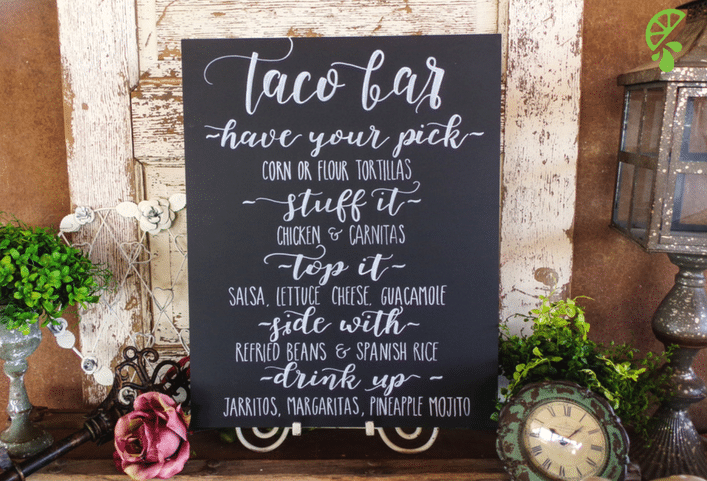 taco bar
~have your pick~
CORN OR FLOUR TORTILLAS
~stuff it~
CHICKEN & CARNITAS
~top it~
SALSA, LETTUCE CHEESE, GUACAMOLE
~side with~
REFRIED BEANS & SPANISH RICE
~drink up~
JARRITOS, MARGARITAS, PINEAPPLE MOJITO